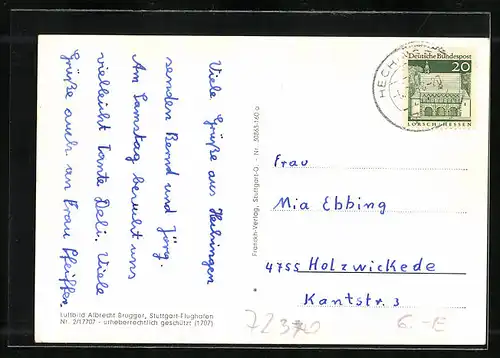 Viele Grüße aus Hechingen
senden Bernd und Jörg.
Am Samstag besucht uns
vielleicht Tante Deli. Viele
Grüße auch an Frau Pfeiffer
Luftbild Albrecht Brugger, Stuttgart-Flughafen
Nr. 2/17707 - urheberrechtlich geschützt (1707)
Franckh-Verlag, Stuttgart-O. - Nr.
HECHINGEN
Deutsche Bundespost
20
LORSCH/HESSEN
Frau
Mia Ebbing
4755 Holzwickede
Kantstr. 3
6.-E